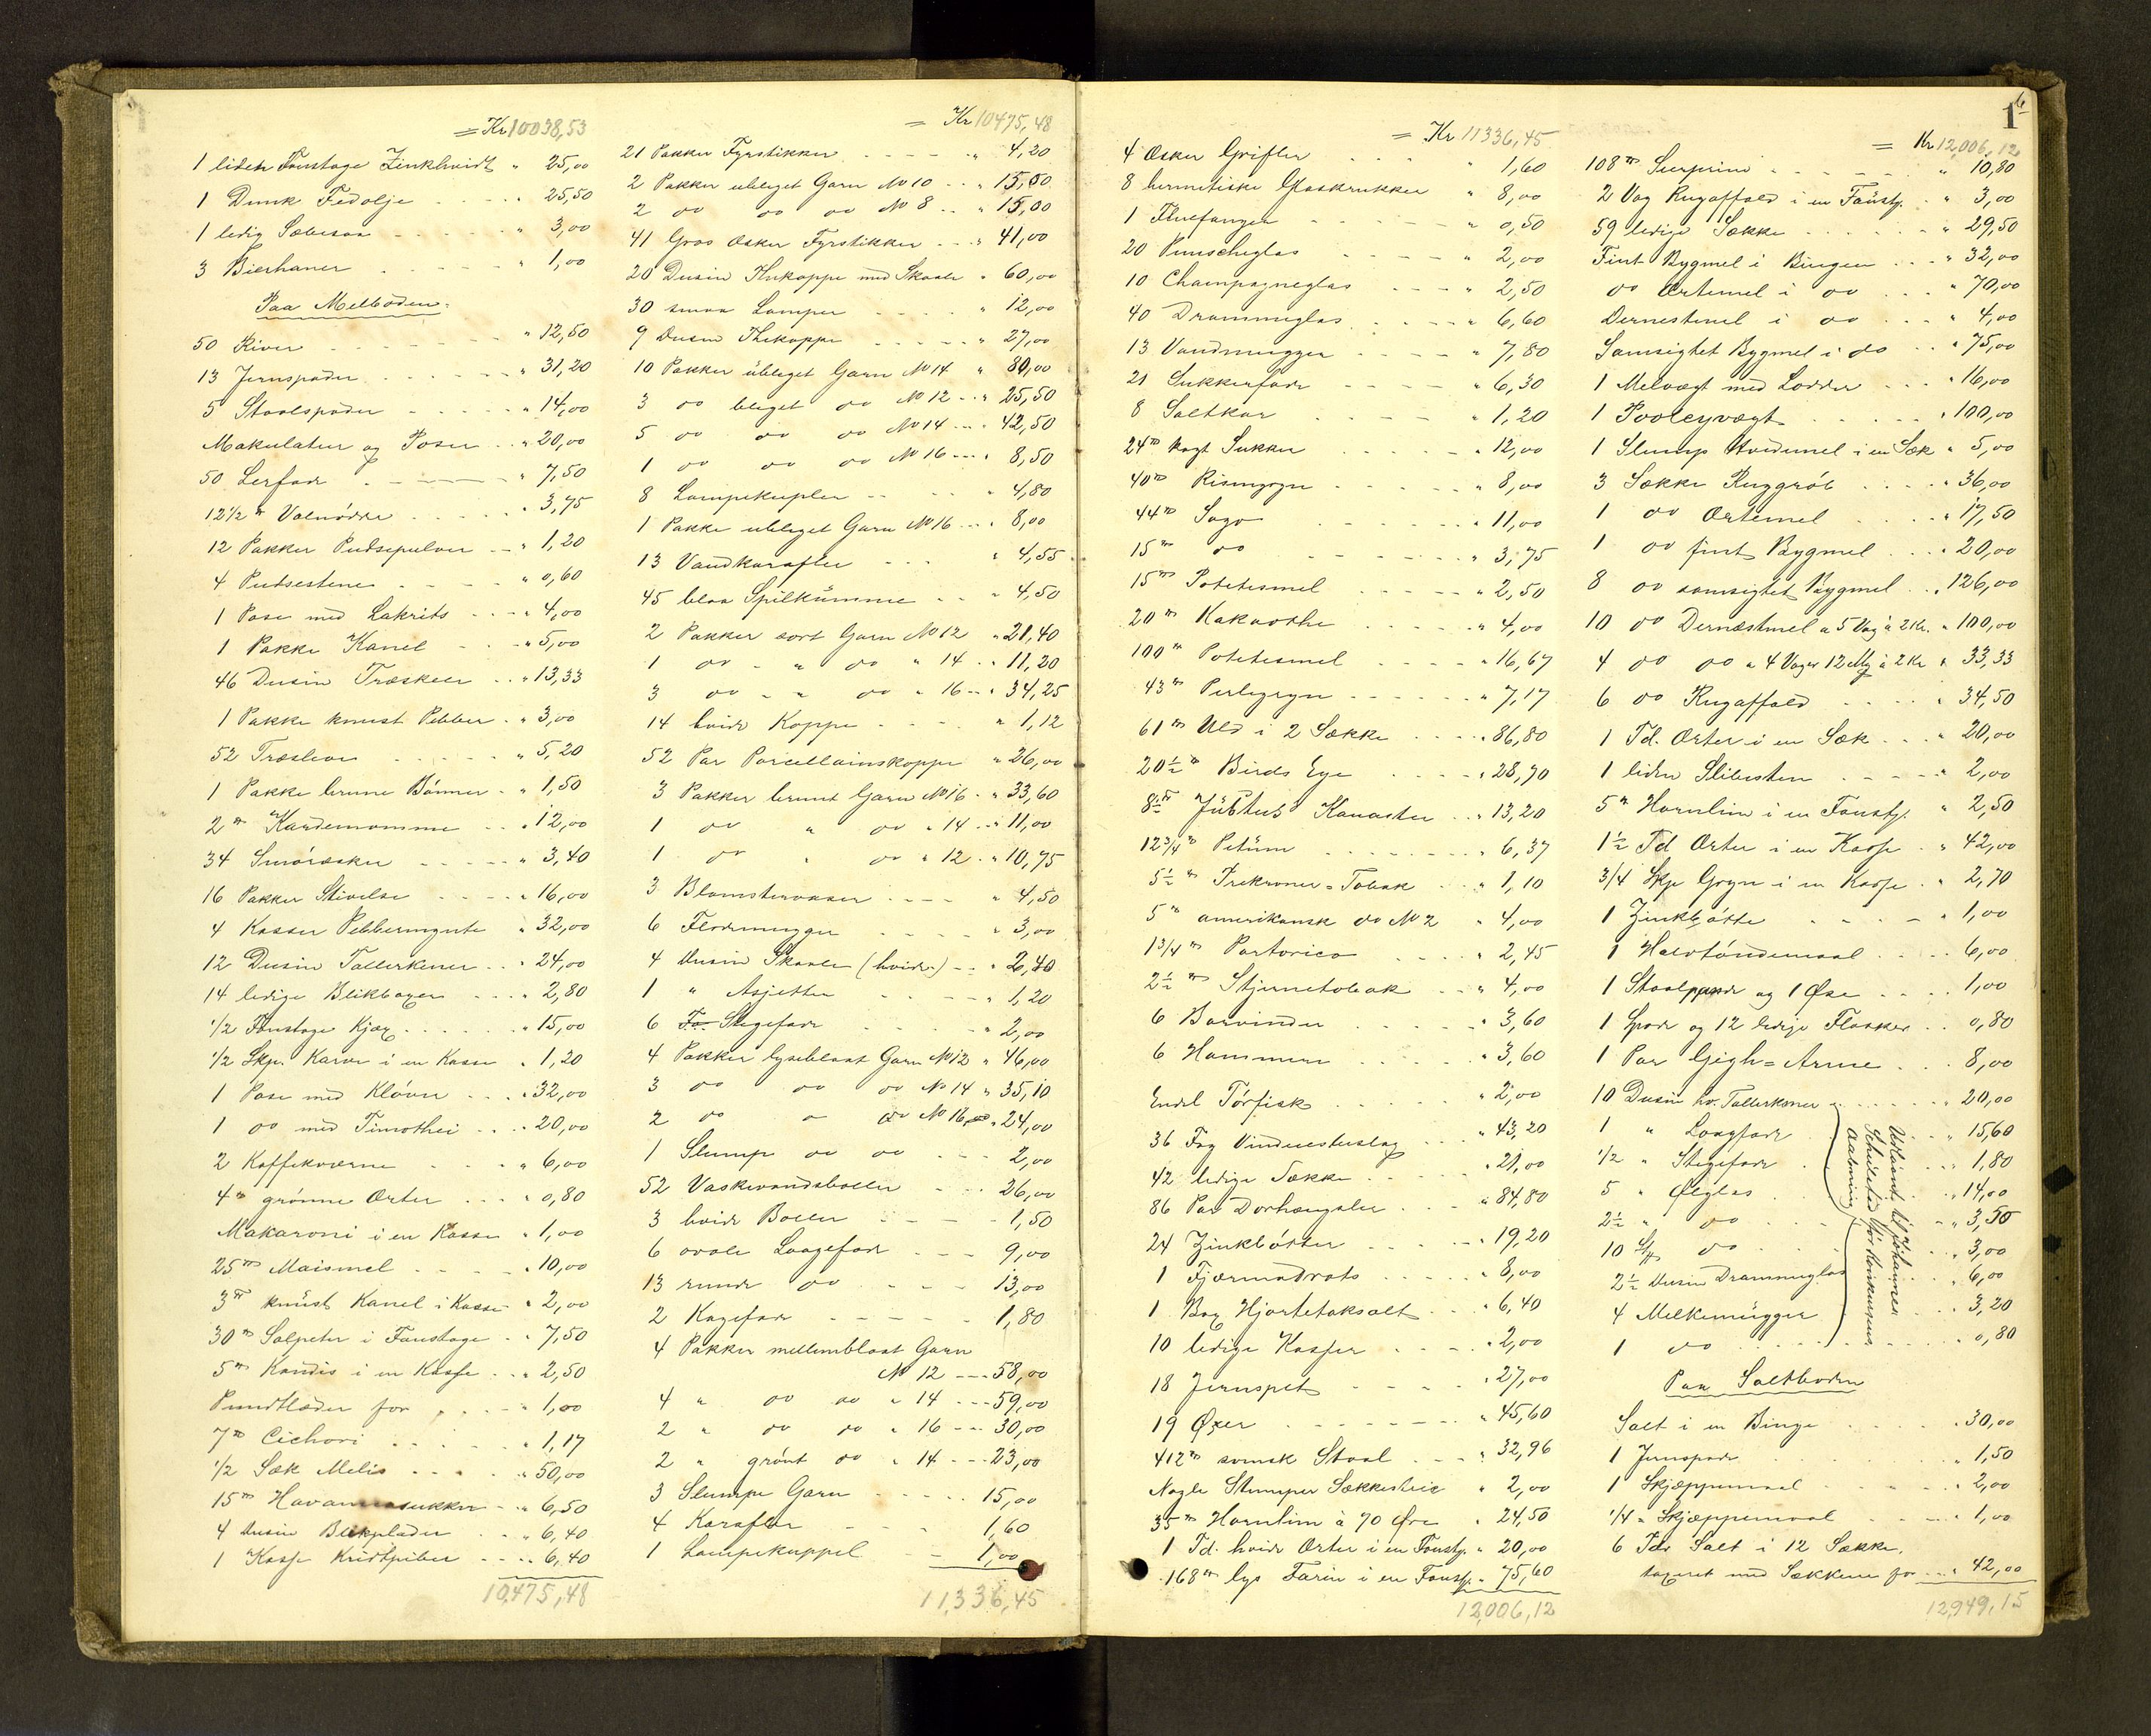 = Kr 10038,53
1 liden Foustage Zinkhvidt " 25,00
1 Dunk Fedolje " 25,50
1 ledig Sæbesaa " 3,00
3 Bierhaner " 1,00
Paa Melboden.
50 River " 12,50
13 Jernspader " 31,20
5 Staalspader " 14,00
Makulatur og Poser " 20,00
50 Lerfade " 7,50
12 1/2 " Valnødder " 3,75
12 Pakker Pudsepulver " 1,20
4 Pudsestene " 0,60
1 Pose med Lakrits " 4,00
1 Pakke Kanel " 5,00
46 Dusin Træskeer " 13,33
1 Pakke knust Pebber " 3,00
52 Træsleve " 5,20
1 Pakke brune Bønner " 1,50
2 " Kardemomme " 12,00
34 Smøræsker " 3,40
16 Pakker Stivelse " 16,00
4 Kasser Pebbermynte " 32,00
12 Dusin Tallerkener " 24,00
14 ledige Blikboxer " 2,80
1/2 Foustage Kjæx " 15,00
1/2 Skp. Karve i en Kasse " 1,20
1 Pose med Kløver " 32,00
1 do med Timothei " 20,00
2 Kaffekværne " 6,00
4 " grønne Erter " 0,80
Makaroni i en Kasse " 1,00
25 " Maismel " 10,00
3 " knust Kanel i Kasse " 2,00
30 " Salpeter i Foustage " 7,50
5 " Kandis i en Kasse " 2,50
Pundtlæder for " 1,00
7 " Cichori " 1,17
1/2 Sæk Melis " 50,00
15 " Havannasukker " 6,50
4 Dusin Blikplader " 6,40
1 Kasse Kridtpiber " 6,40
10,475,48
= Kr 10475,48
21 Pakker Fyrstikker " 4,20
2 Pakker ubleget Garn No 10 " 15,00
2 do do do No 8 " 15,00
41 Gros Æsker Fyrstikker " 41,00
20 Dusin Thekoppe med Skaale " 60,00
30 smaa Lamper " 12,00
9 Dusin Thekoppe " 27,00
10 Pakker ubleget Garn No 14 " 80,00
3 do bleget do No 12 " 25,50
5 do do do No 14 " 42,50
1 do do do No 16 " 8,50
8 Lampekupler " 4,80
1 Pakke ubleget Garn No 16 " 8,00
13 Vandkarafler " 4,55
45 blaa Spilkumme " 4,50
2 Pakker sort Garn No 12 " 21,40
1 do " do " 14 " 11,20
3 do " do " 16 " 34,25
14 hvide Koppe " 1,12
52 Par Porcellainskoppe " 26,00
3 Pakker brunt Garn No 16 " 33,60
1 do " do " 14 " 11,00
1 do " do " 12 " 10,75
3 Blomstervaser " 4,50
6 Flødemugger " 3,00
4 Dusin Skaale (hvide) " 2,40
1 " Asjetter " 1,20
6 Stegefade " 2,00
4 Pakker lyseblaat Garn No 12 " 46,00
3 do do do No 14 " 35,10
2 do do No 16 " 24,00
1 Slump do do 2,00
52 Vaskevandsboller 26,00
3 hvide Boller 1,50
6 ovale Laagefade 9,00
13 runde do 13,00
2 Kagefade 1,80
4 Pakker mellemblaat Garn
No 12 58,00
4 " do do " 14 59,00
2 " do do " 16 30,00
2 " grønt do " 14 23,00
3 Slumpe Garn 15,00
4 Karafler 1,60
1 Lampekuppel 1,00
11,336,45
= Kr 11336,45
4 Æsker Grifler " 1,60
8 hermetiske Glaskrukker " 8,00
1 Fluefanger " 0,50
20 Punscheglas " 2,00
10 Champagneglas " 2,50
40 Drammeglas " 6,60
13 Vandmugger " 7,80
21 Sukkerfade " 6,30
8 Saltkar " 1,20
24 " kogt Sukker " 12,00
40 " Risengryn " 8,00
44 " Sago " 11,00
15 " do " 3,75
15 " Potetesmel " 2,50
20 " Kakaothe " 4,00
100 " Potetesmel " 16,67
43 " Perlegryn " 7,17
61 " Uld i 2 Sække " 86,80
20 1/2 " Birds Eye " 28,70
8 1/4 " Justus Kanaster " 13,20
12 3/4 " Petum " 6,37
5 1/2 " Trekroner-Tobak " 1,10
5 " amerikansk do No 2 " 4,00
1 3/4 " Portorico " 2,45
2 1/2 " Stjernetobak " 4,00
6 Borvinder " 3,60
6 Hammere " 3,60
Endel Tørfisk " 2,00
36 Fag Vinduesbeslag " 43,20
42 ledige Sække " 21,00
86 Par Dørhængsler " 84,80
24 Zinkbøtter " 19,20
1 Fjærmadrats " 8,00
1 Box Hjortetaksalt " 6,40
10 ledige Kasser " 2,00
18 Jernspet " 27,00
19 Øxer " 45,60
412 " svensk Staal " 32,96
Nogle Stumper Sækkestrie " 2,00
35 " Hornlim à 70 Øre " 24,50
1 Td. hvide Erter i en Foustg. " 20,00
168 " lys Farin i en Foustg. " 75,60
12,006,12
1
6
= Kr 12,006,12
108 " Seerpriim " 10,80
2 Vog Rugaffald i en Foustg. " 3,00
59 ledige Sække " 29,50
Fint Bygmel i Bingen " 32,00
do Ertemel i do " 70,00
Dernestmel i do " 4,00
Samsigtet Bygmel i do " 75,00
1 Melvægt med Lodder " 16,00
1 Pooleyvægt " 100,00
1 Slump Hvedemel i en Sæk " 5,00
3 Sække Ruggrøb " 36,00
1 do Ertemel " 17,50
1 do fint Bygmel " 20,00
8 do samsigtet Bygmel " 126,00
10 do Dernæstmel a 5 Vog à 2 Kr. " 100,00
4 do do a 4 Voger 12 Mg à 2 Kr " 33,33
6 do Rugaffald " 34,50
1 Td. Erter i en Sæk " 20,00
1 liden Slibesten " 2,00
5 " Hornlim i en Foustg. " 2,50
1 1/2 Td Erter i en Kasse " 42,00
3/4 Skp Gryn i en Kasse " 2,70
1 Zinkbøtte " 1,00
1 Halvtøndemaal 6,00
1 Staalspade og 1 Øse 1,00
1 Spade og 12 ledige Flasker 0,80
1 Par Gigh-Arme 8,00
10 Dusin hv. Tallerkener " 20,00
1 " Laagfade " 15,60
1/2 " Stegefade 1,80
5 " Ølglas " 14,00
2 1/2 " do " 3,50
10 do " 3,00
2 1/2 Dusin Drammeglas " 6,00
4 Melkemugger 3,20
1 do 0,80
Udlaant til Johannes
Schieldtid før Konkursens
Aabning
Paa Saltboden
Salt i en Binge " 30,00
1 Jernspade " 1,50
1 Skjæppemaal " 2,00
1/4 " Skjæppemaal " 1,00
6 Tdr Salt i 12 Sække,
taxeret med Sækkene for " 42,00
12,949,15